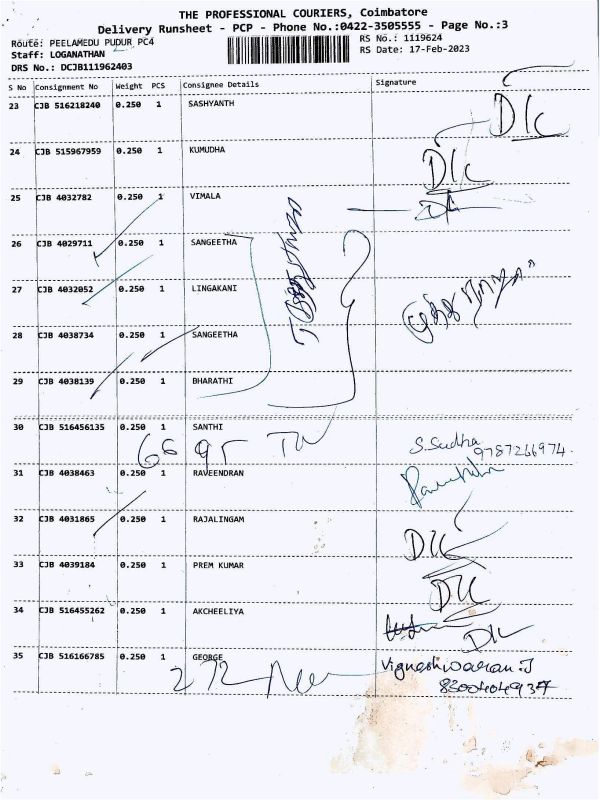 THE PROFESSIONAL COURIERS, Coimbatore
Delivery Runsheet - PCP - Phone No.:0422-3505555 - Page No.:3
Route: PEELAMEDU PUDUR PC4
RS No.: 1119624
Staff: LOGANATHAN
RS Date: 17-Feb-2023
DRS No.: DCJB111962403
S No Consignment No Weight PCS Consignee Details Signature
23 CJB 516218240 0.250 1 SASHYANTH
D/c
24 CJB 515967959 0.250 1 KUMUDHA
D/c
25 CJB 4032782 0.250 1 VIMALA
26 CJB 4029711 0.250 1 SANGEETHA
27 CJB 4032052 0.250 1 LINGAKANI
28 CJB 4038734 0.250 1 SANGEETHA
29 CJB 4038139 0.250 1 BHARATHI
30 CJB 516456135 0.250 1 SANTHI
S.Sudha
9787266974
31 CJB 4038463 0.250 1 RAVEENDRAN
32 CJB 4031865 0.250 1 RAJALINGAM
33 CJB 4039184 0.250 1 PREM KUMAR
34 CJB 516455262 0.250 1 AKCHEELIYA
35 CJB 516166785 0.250 1 GEORGE
Vigneshwaran.J